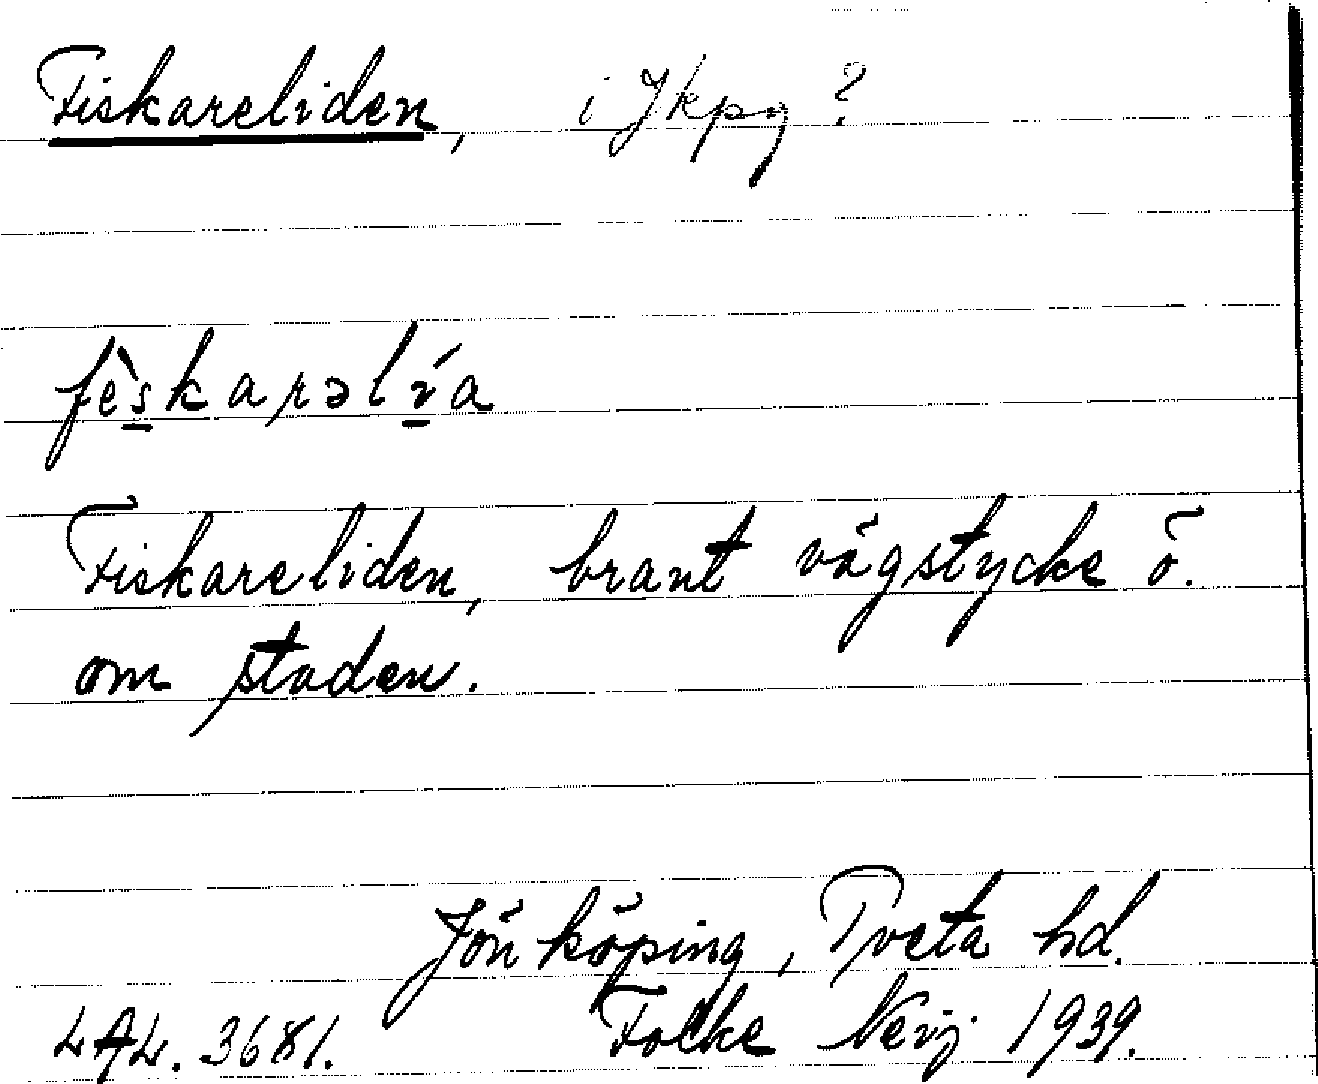 Fiskareliden, i Jkpg?
fès̲karəlı̲́a
Fiskareliden, brant vägstycke ö.
om staden.
Jönköping, Tveta hd.
LAL. 3681. Folke Neij 1939.